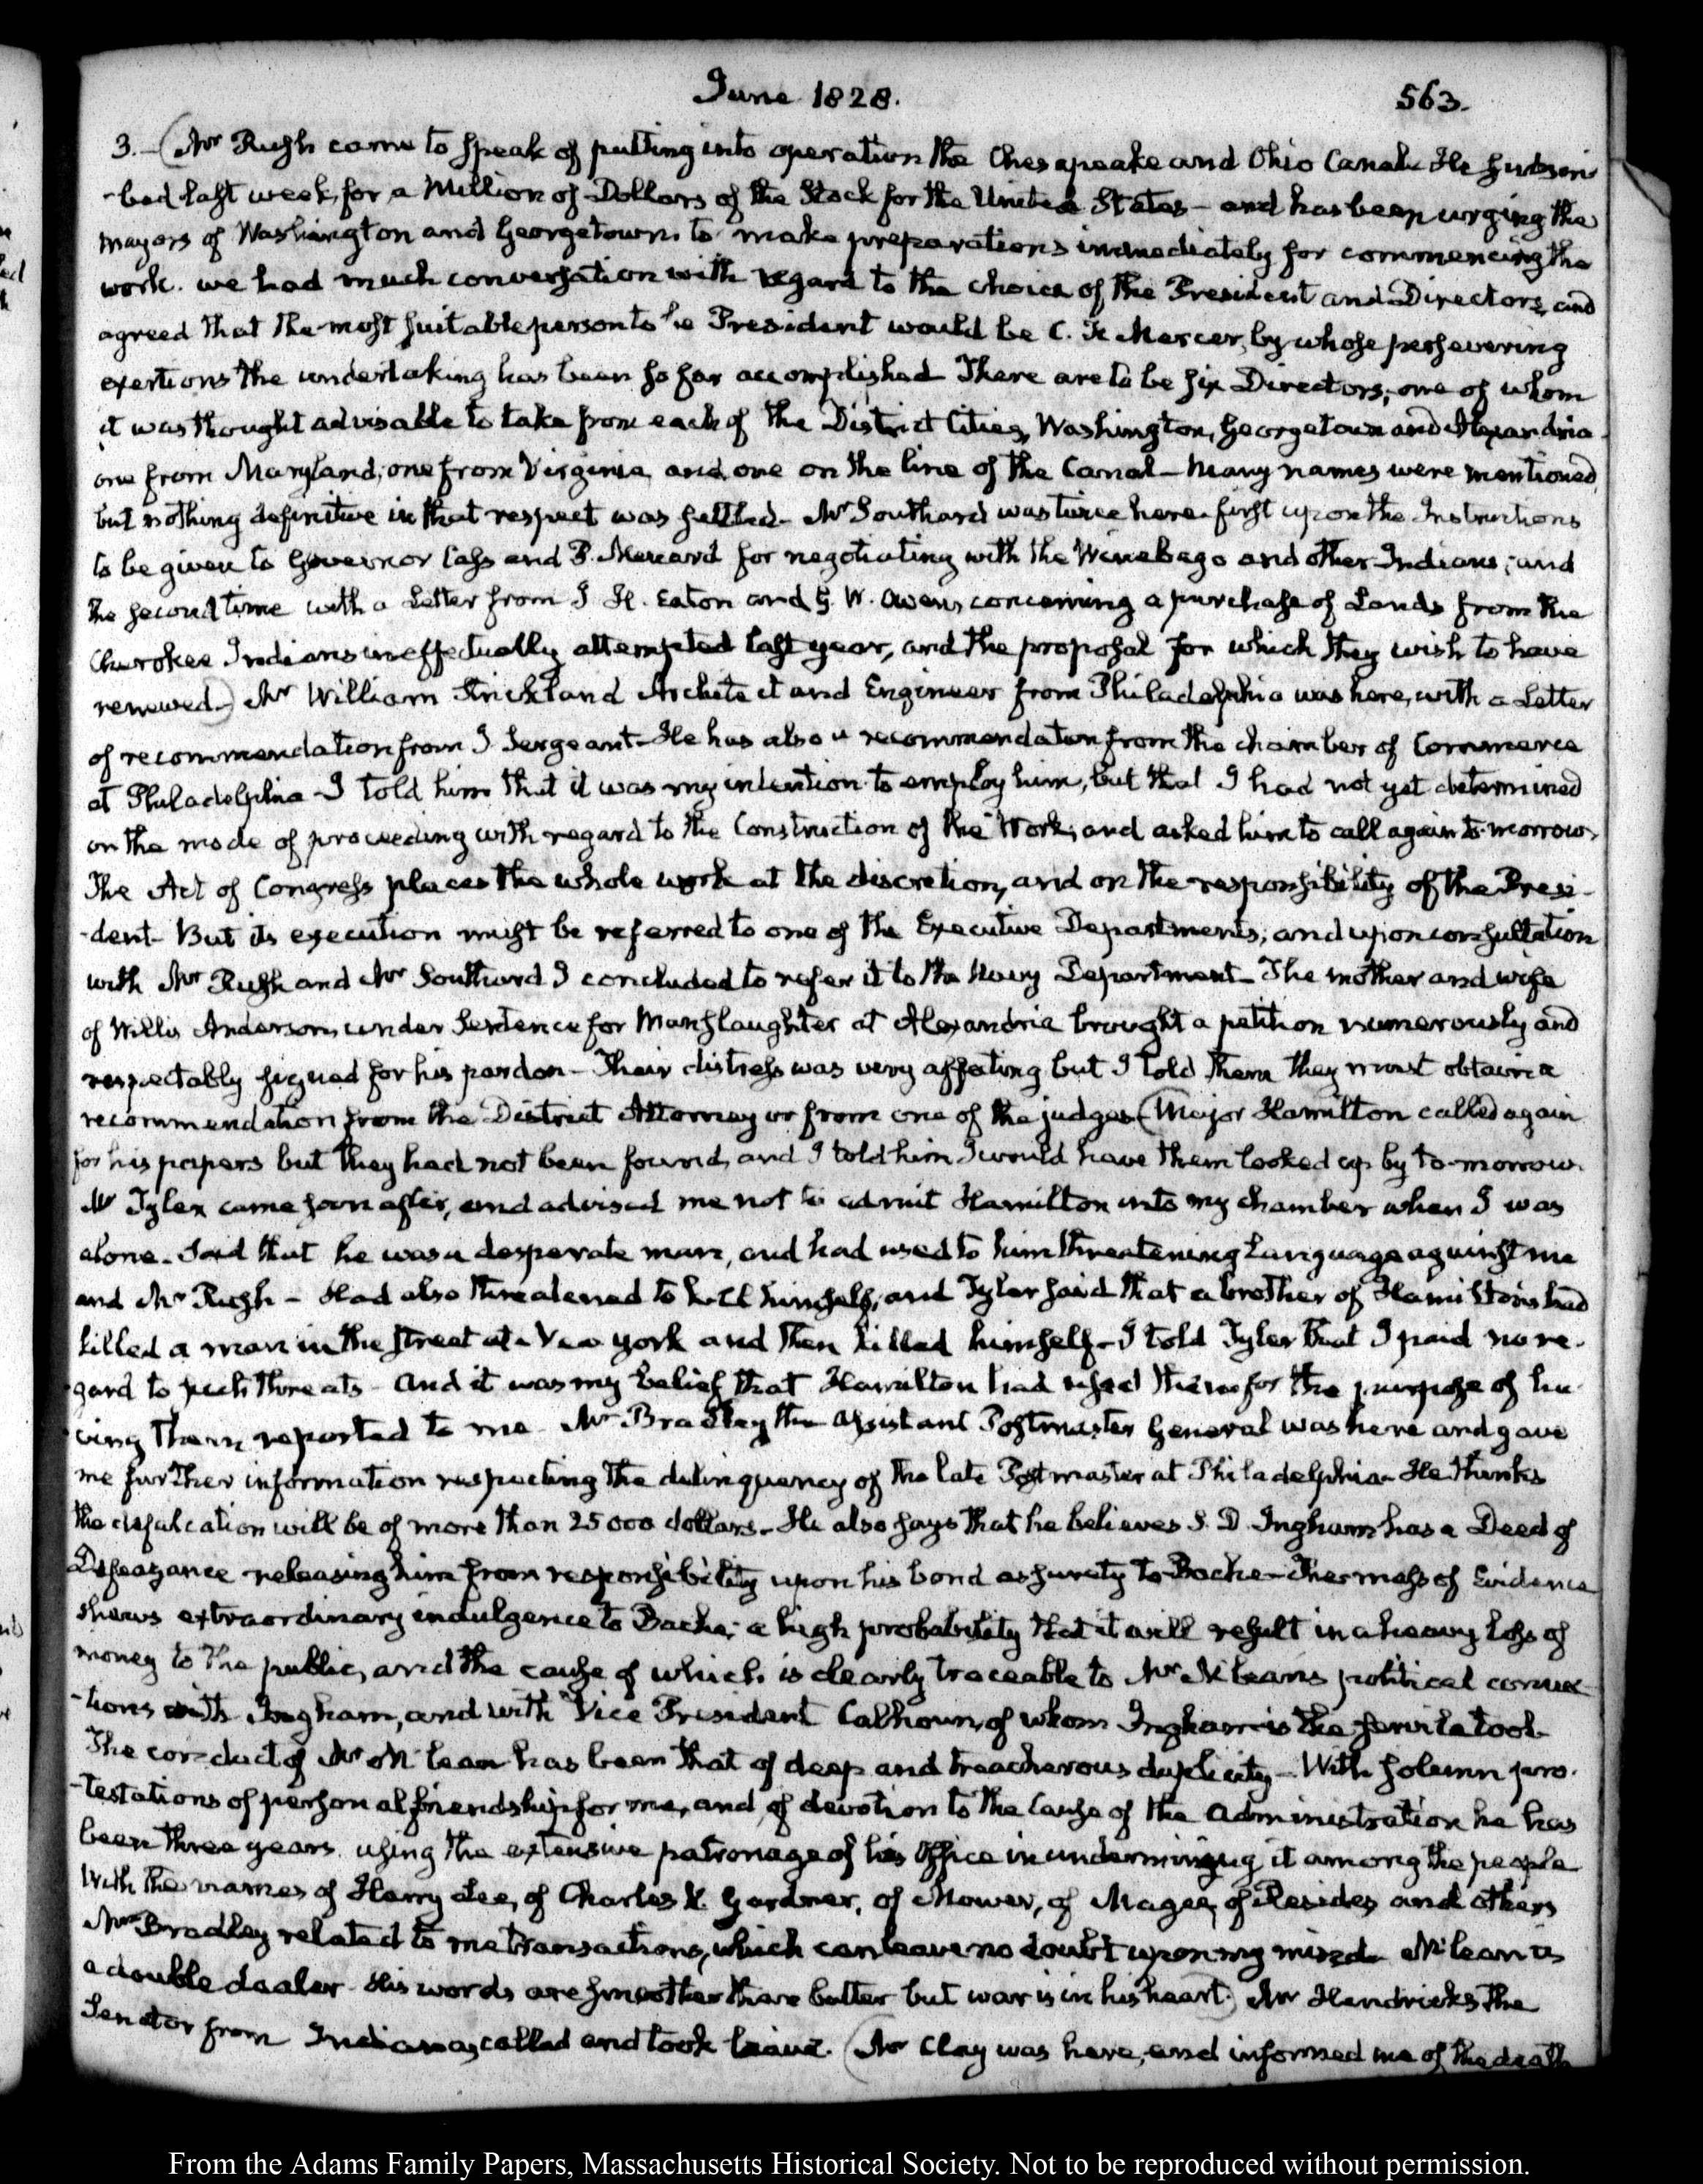 June 1828.
563.
3.— (Mr Rush came to speak of putting into operation the Chesapeake and Ohio Canal. He subscri-
-bed last week, for a Million of Dollars of the Stock for the United States — and has been urging the
mayors of Washington and Georgetown to make preparations immediately for commencing the
work. we had much conversation with regard to the choice of the President and Directors, and
agreed that the most suitable person to be President would be C. F. Mercer, by whose persevering
exertions the undertaking has been so far accomplished There are to be six Directors; one of whom
it was thought advisable to take from each of the District Cities, Washington, Georgetown and Alexandria
one from Maryland; one from Virginia and one on the line of the Canal — Many names were mentioned,
but nothing definitive in that respect was settled. Mr Southard was twice here. first upon the Instructions
to be given to Governor Cass and P. Menard for negotiating with the Winebago and other Indians; and
the second time with a Letter from J. H. Eaton and G. W. Owens concerning a purchase of Lands from the
Cherokee Indians ineffectually attempted last year, and the proposal for which they wish to have
renewed.) Mr William Strickland Architect and Engineer from Philadelphia was here, with a Letter
of recommendation from J Sergeant. He has also a recommendation from the Chamber of Commerce
at Philadelphia — I told him that it was my intention to employ him, but that I had not yet determined
on the mode of proceeding with regard to the Construction of the Work, and asked him to call again to-morrow.
The Act of Congress places the whole work at the discretion, and on the responsibility of the Presi-
-dent. But its execution must be referred to one of the Executive Departments; and upon consultation
with Mr Rush and Mr Southard I concluded to refer it to the Navy Department — The mother and wife
of Willis Anderson, under Sentence for Manslaughter at Alexandria brought a petition numerously and
respectably signed for his pardon — Their distress was very affecting but I told them they must obtain a
recommendation from the District Attorney or from one of the judges. (Major Hamilton called again
for his papers but they had not been found, and I told him I would have them looked up by to-morrow.
Mr Tyler came soon after, and advised me not to admit Hamilton into my chamber when I was
alone. Said that he was a desperate man, and had used to him threatening Language against me
and Mr Rush — Had also threatened to kill himself; and Tyler said that a brother of Hamilton's had
killed a man in the street at New York and then killed himself — I told Tyler that I paid no re-
-gard to such threats — and it was my belief that Hamilton had used them for the purpose of ha-
-ving them reported to me — Mr Bradley the Assistant Postmaster General was here and gave
me further information respecting the delinquency of the late Postmaster at Philadelphia. He thinks
the defalcation will be of more than 25 000 dollars. He also says that he believes S. D. Ingham has a Deed of
Defeazance releasing him from responsibility upon his bond as surety to Bache. The mass of Evidence
shews extraordinary indulgence to Bache; a high probability that it will result in a heavy loss of
money to the public, and the cause of which is clearly traceable to Mr McLean's political connec-
-tions with Ingham, and with Vice President Calhoun, of whom Ingham is the servile tool.
The conduct of Mr McLean has been that of deep and treacherous duplicity — With solemn pro-
-testations of personal friendship for me, and of devotion to the Cause of the Administration he has
been three years using the extensive patronage of his Office in undermining it among the people
With the names of Harry Lee, of Charles K. Gardner, of Mower, of Magee, of Resides and others
Mr Bradley related to me transactions, which can leave no doubt upon my mind. McLean is
a double dealer. His words are smoother than butter but war is in his heart.) Mr Hendricks the
Senator from Indiana, called and took leave. (Mr Clay was here, and informed me of the death
From the Adams Family Papers, Massachusetts Historical Society. Not to be reproduced without permission.